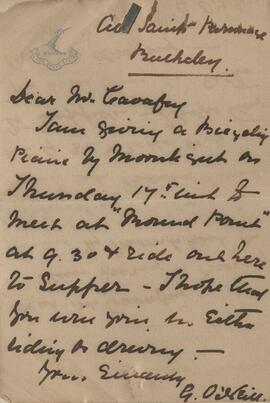 All Saints Parsonage
Bulkeley.
Dear Mr. Cavafy
I am giving a Bicycling
Picnic by Moonlight on
Thursday 17th inst to
meet at "Mound Point"
at 9.30 & ride out here
to Supper - I hope that
you will join us either
riding or driving -
Yours Sincerely
G.